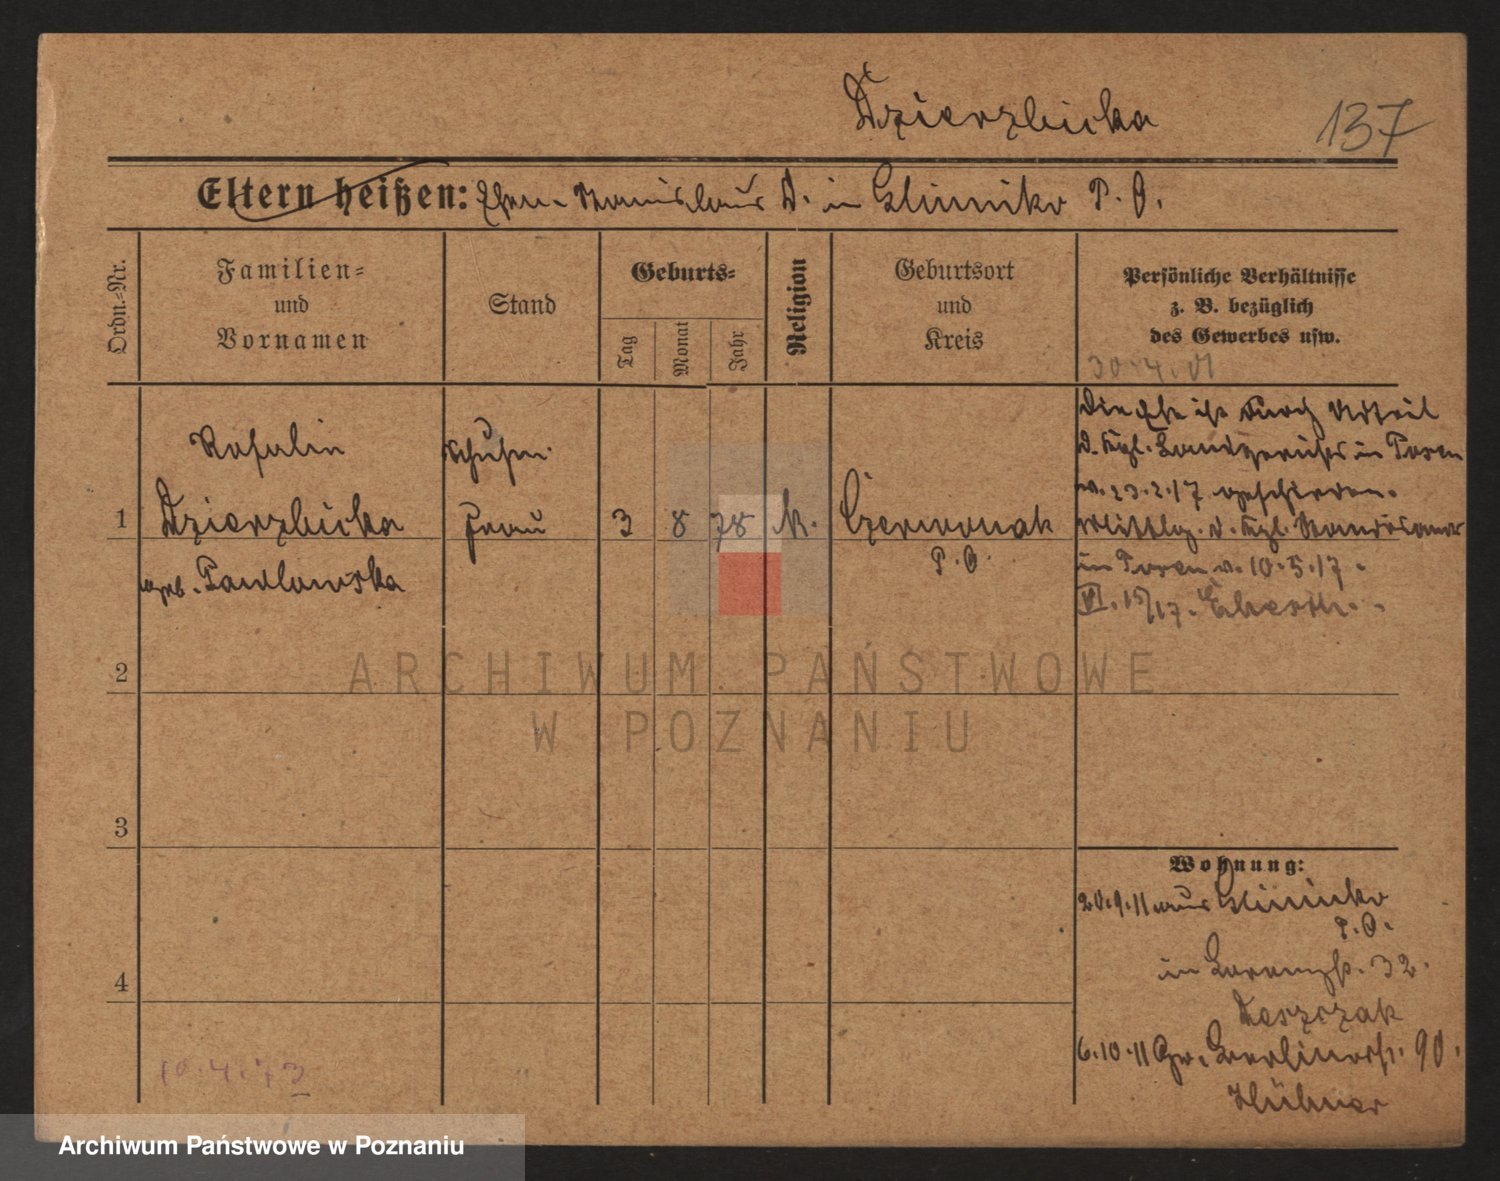 Dzierzbicka
137
Eltern heißen: Ehem. Stanislaus D. in Glinnik P. O.
Ordn.-Nr.
Familien-
und
Vornamen
Stand
Geburts-
Tag
Monat
Jahr
Religion
Geburtsort
und
Kreis
Persönliche Verhältnisse
z. B. bezüglich
des Gewerbes usw.
Die Ehe ist durch Urteil
d. Kgl. Landgerichts in Posen
v. 23.2.17 geschieden.
Mittlg. d. Kgl. Standesamt
in Posen v. 10.5.17.
VI. 15/17.
1
Rosalie
Dzierzbicka
geb. Pawlowska
Frau
3
8
78
K.
Czerwonak
P. O.
2
3
4
Wohnung:
20.9.11 aus
P. O.
in 32.
Leszczak
6.10.11 Gr. Berlinerstr. 90.
Hübner
10.4.73
ARCHIWUM PAŃSTWOWE
W POZNANIU
Archiwum Państwowe w Poznaniu